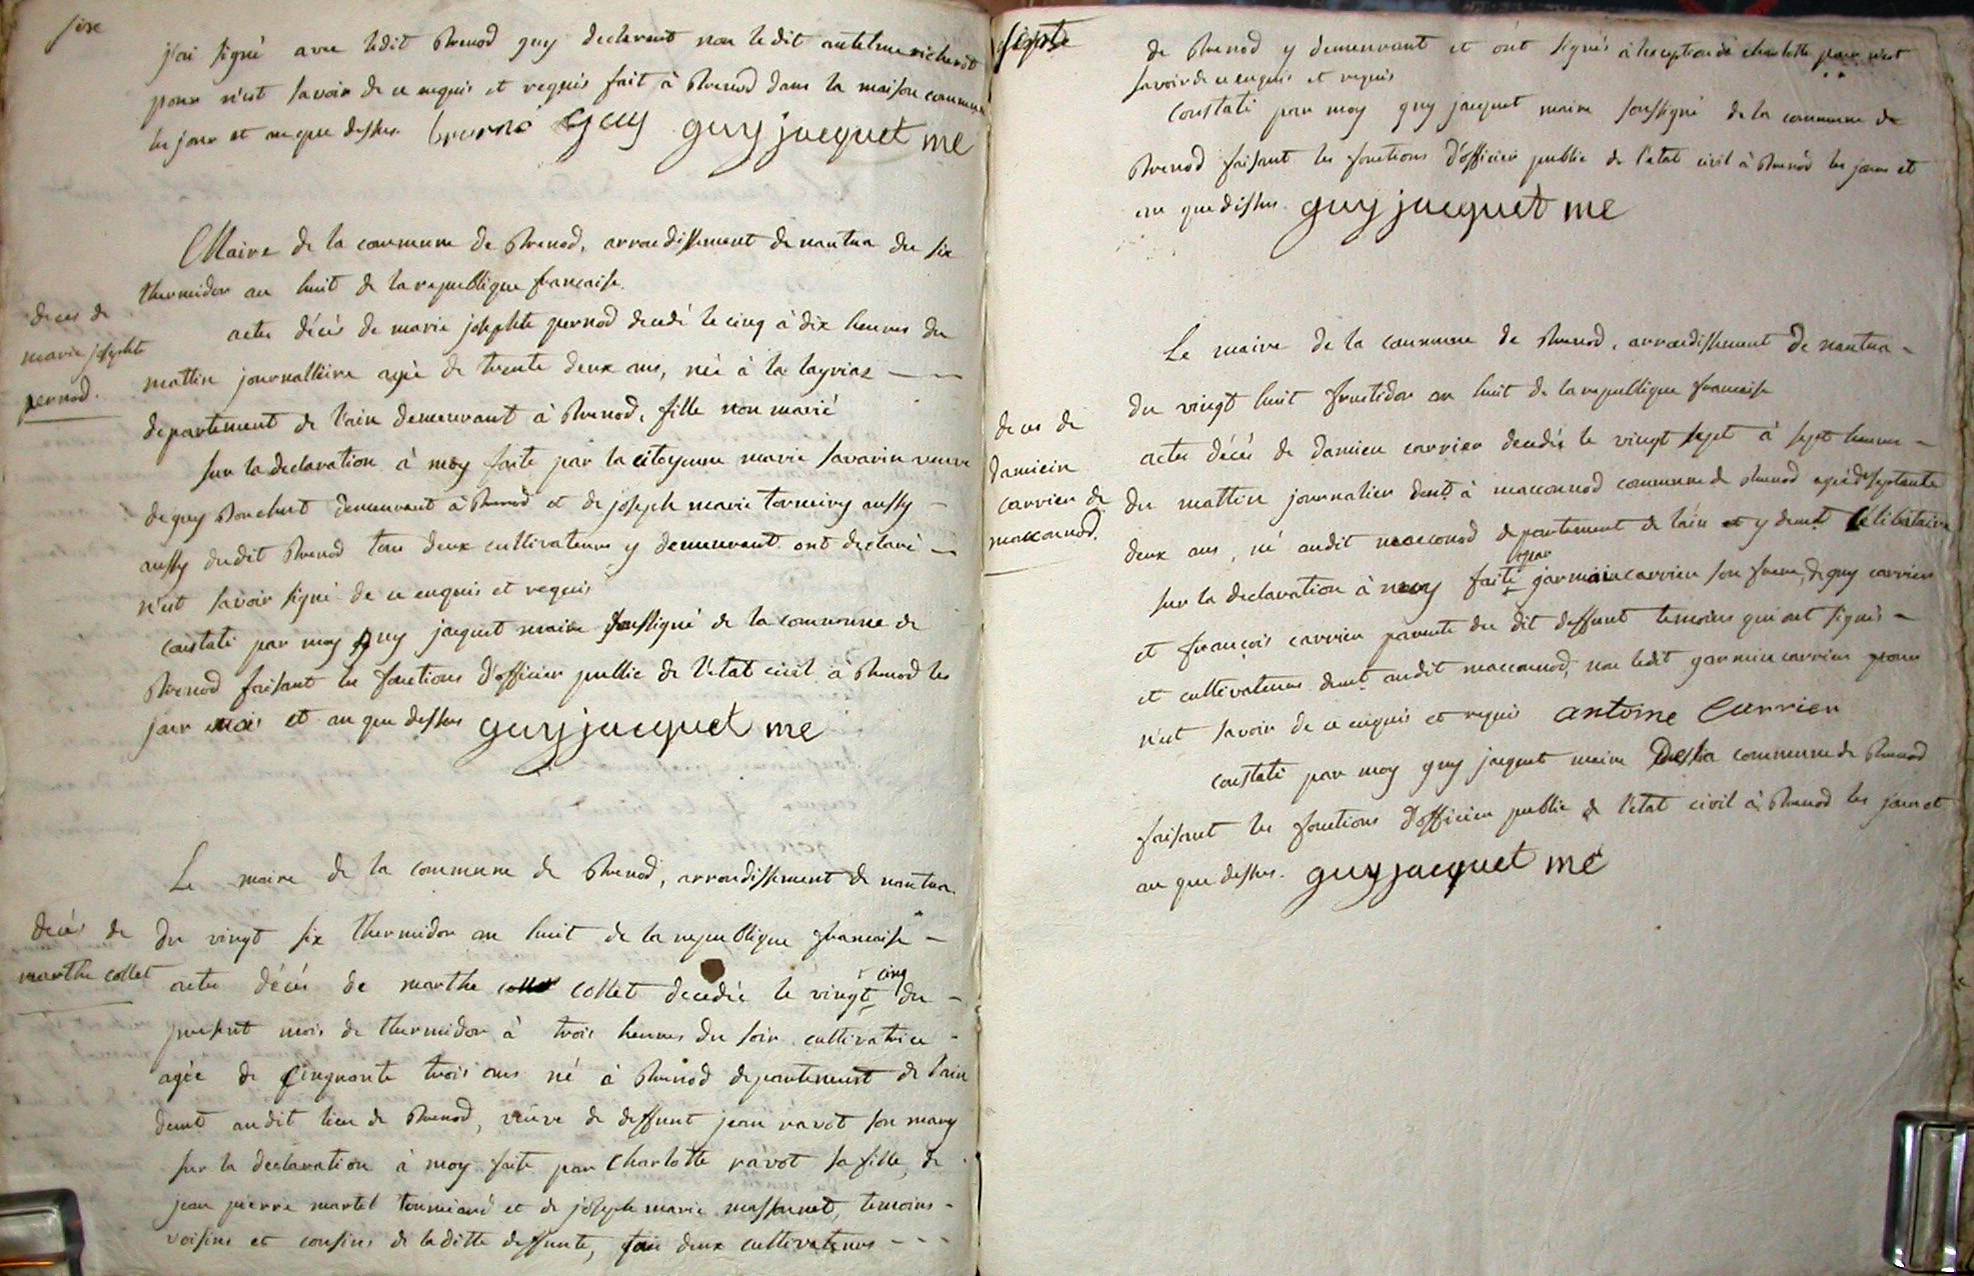 sixe
j'ai signé avec ledit Brenod guy declarant non ledit antelme
pour n'est savoir de ce enquis et requis fait à Brenod dans la maison commune
les jour et an que dessus guy guy jacquet me
Maire de la commune de Brenod, arrondissement de nantua du six
thermidor an huit de la republique francaise.
deces de
marie josephte
pernod.
acte décès de marie josephte pernod decedé le cinq à dix heures du
mattin journalliere agée de trente deux ans, née à la layriaz
departement de l'ain demeurant à Brenod, fille non marié
sur la declaration à moy faite par la citoyenne marie savarin veuve
de guy Borchut demeurant à Brenod et de joseph marie torniery aussy
aussy dudit Brenod tous deux cultivateurs y demeurant ont declaré
n'est savoir signé de ce enquis et requis
constaté par moy guy jacquet maire soussigné de la commune de
Brenod faisant les fonctions d'officier public de l'etat civil à Brenod les
jour mois et an que dessus guy jacquet me
Le maire de la commune de Brenod, arrondissement de nantua
décès de
marthe collet
du vingt six thermidor an huit de la republique francaise
acte décès de marthe collet decedée le vingt cinq du
present mois de thermidor à trois heures du soir cultivatrice
agée de cinquante trois ans né à Brenod departement de l'ain
demt audit lieu de Brenod, veuve de deffunt jean ravot son mary
sur la declaration à moy faite par Charlotte ravot sa fille, de
jean pierre martel et de joseph marie massonnet, temoins
voisins et cousins de laditte deffunte, tous deux cultivateurs
septe
de Brenod y demeurant et ont signés à l'exeption de charlotte pour n'est
savoir de ce enquis et requis
constaté par moy guy jacquet maire soussigné de la commune de
Brenod faisant les fonctions d'officier public de l'etat civil à Brenod les jours et
an que dessus. guy jacquet me
Le maire de la commune de Brenod, arrondissement de nantua
du vingt huit fructidor an huit de la republique francaise
deces de
damiein
carrier de
maconnod.
acte décés de damien carrier decedés le vingt sept à sept heures
du mattin journalier demt à macconnod commune de Brenod agé de septante
deux ans, né audit macconod departement de l'ain et y demt célibataire
sur la declaration à moy faite par garmain carrier son frere, de guy carrier
et françois carrier parents du dit deffunt temoins qui ont signés
et cultivateurs demt audit macconnod, non ledit garmin carrier pour
n'est savoir de ce enquis et requis antoine Carrier
constaté par moy guy jacquet maire de la commune de Brenod
faisant les fonctions d'officier public de l'etat civil à Brenod les jour et
an que dessus. guy jacquet me